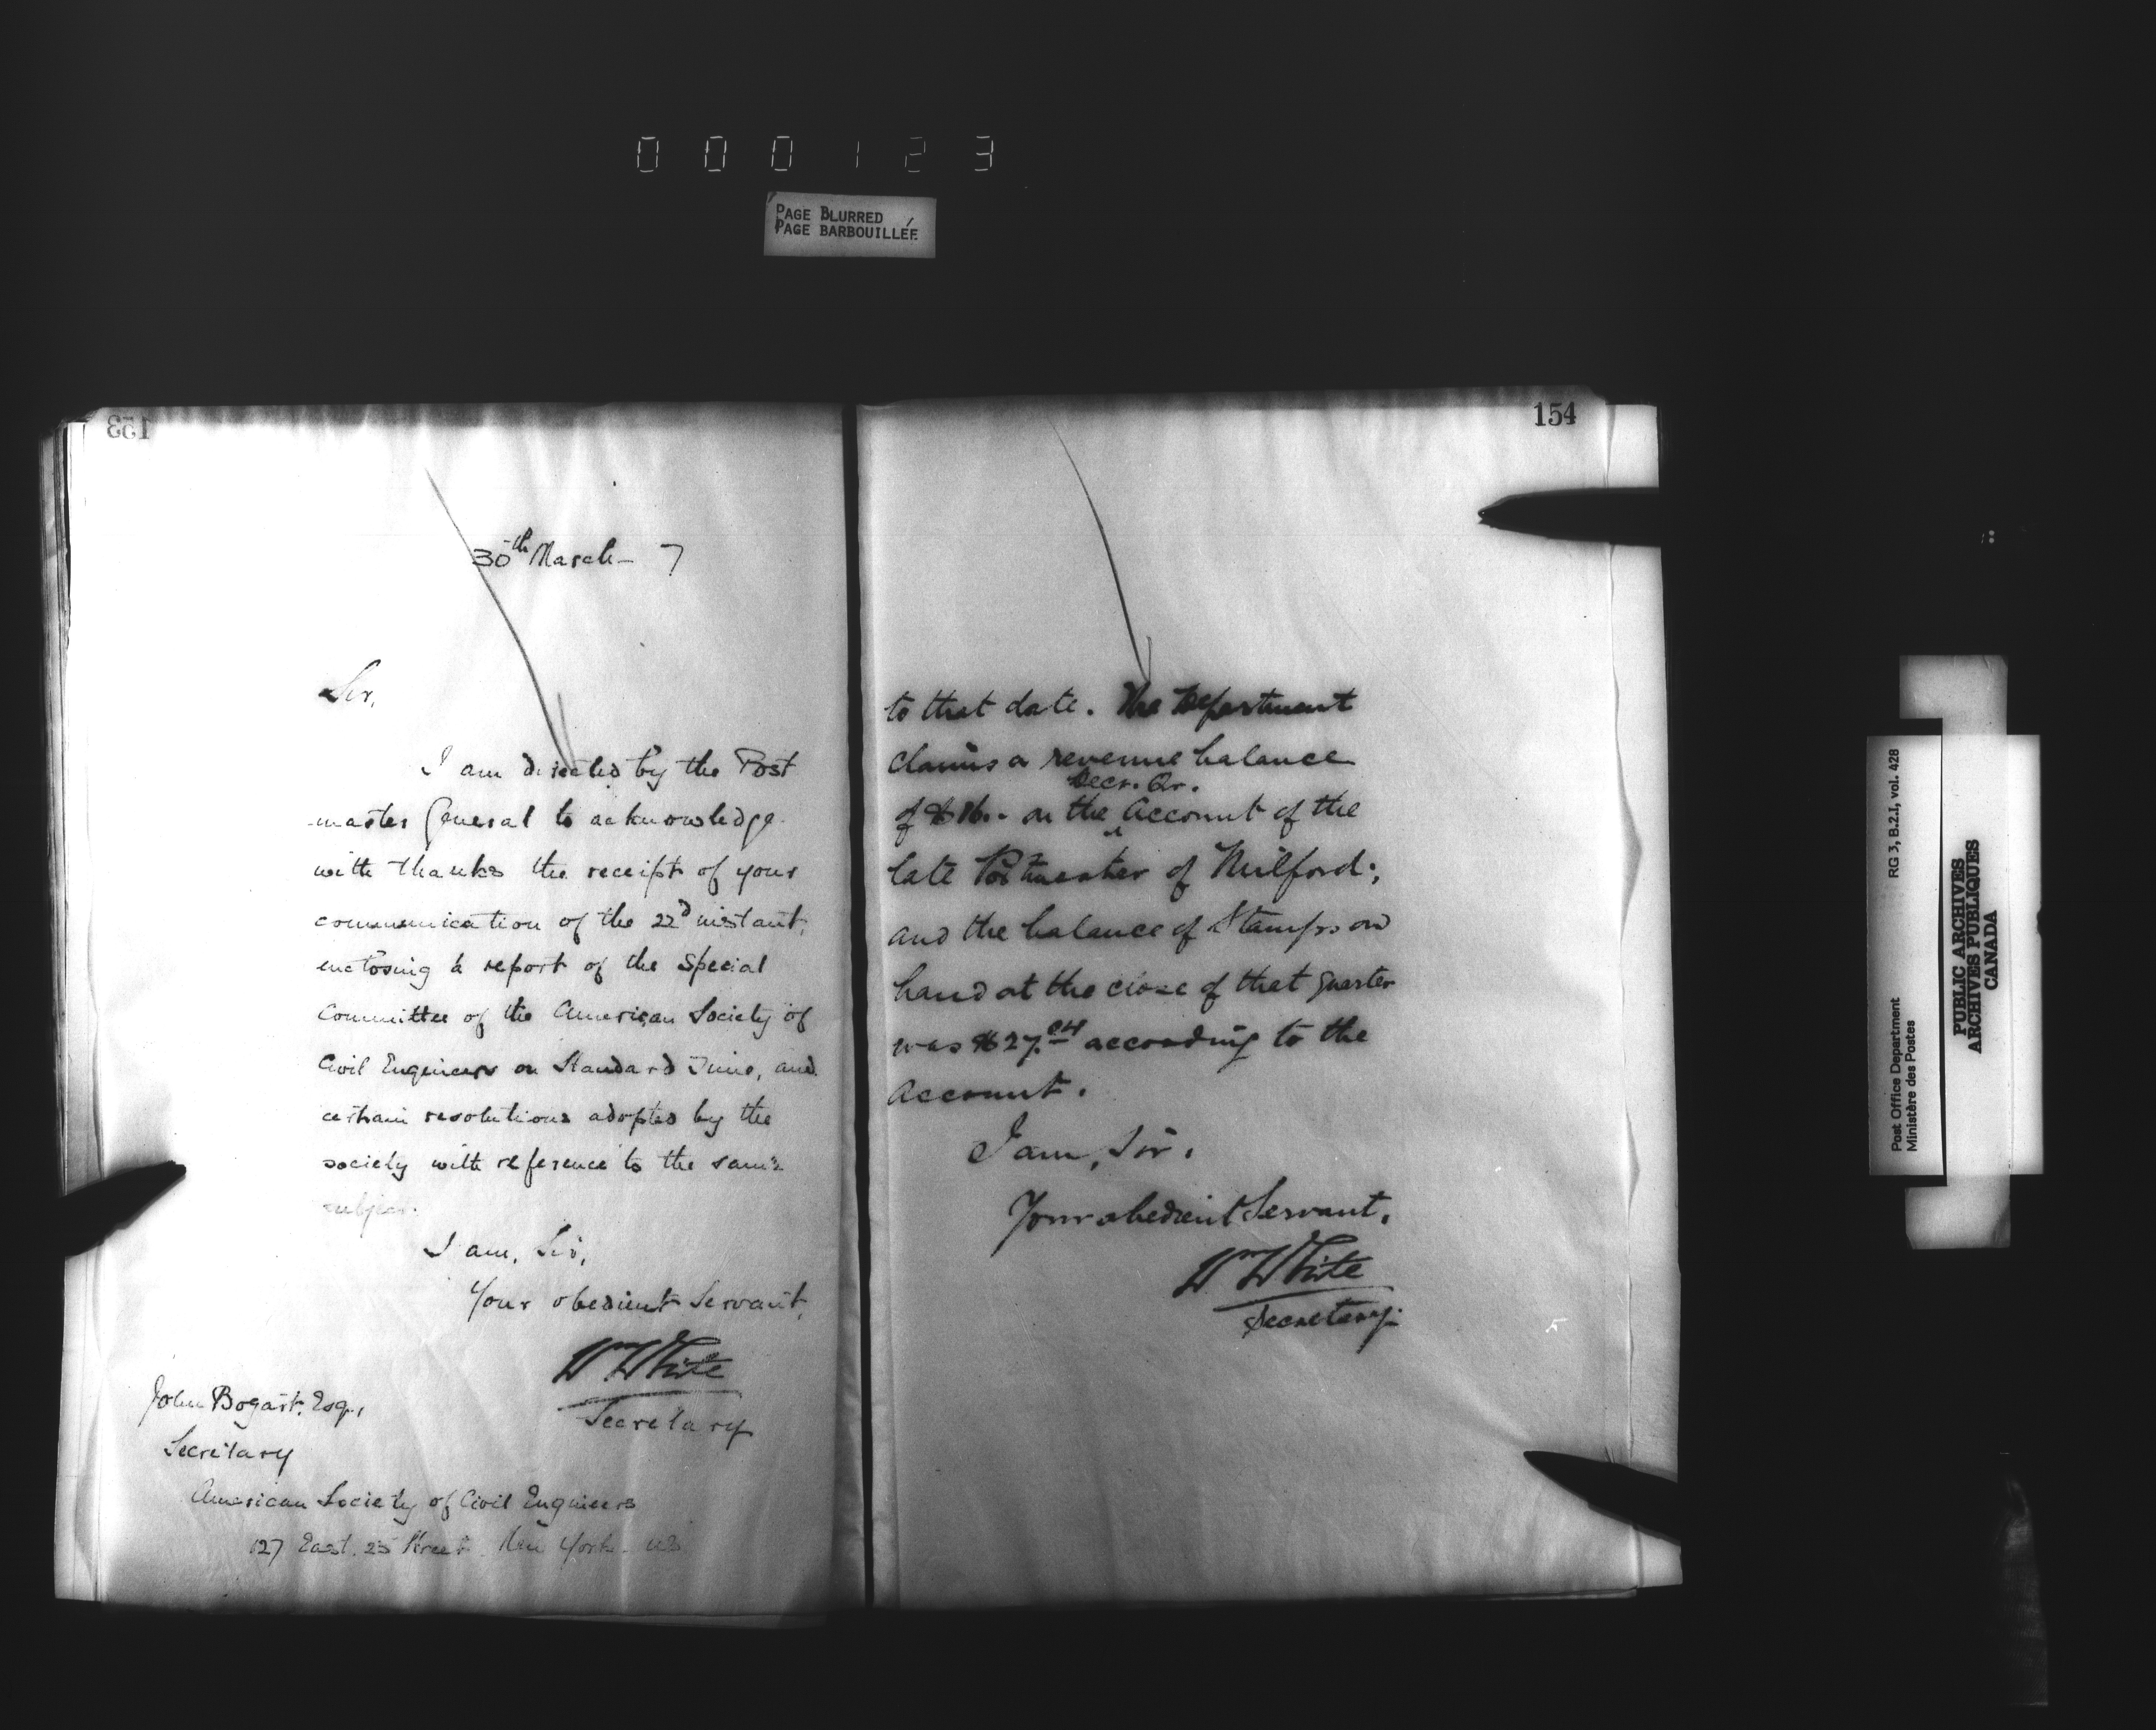 0 0 0 1 2 3
PAGE BLURRED
PAGE BARBOUILLÉE
153
30th March— 7
Sir,
I am directed by the Post
master General to acknowledge
with thanks the receipt of your
communication of the 22d instant,
enclosing a report of the Special
Committee of the American Society of
Civil Engineers on Standard Time, and
certain resolutions adopted by the
society with reference to the same
subject.
I am, Sir,
Your obedient Servant,
Wm White
Secretary
John Bogart, Esq.,
Secretary
American Society of Civil Engineers
127 East. 23 Street. New York. US
154
to that date. The Department
claims a revenue balance
Decr. Qr.
of $16.- on the Account of the
late Postmaster of Milford;
and the balance of Stamps on
hand at the close of that quarter
was $27.04 according to the
Account.
I am, Sir,
Your obedient Servant,
Wm White
Secretary.
RG 3, B.2.I, vol. 428
Post Office Department
Ministère des Postes
PUBLIC ARCHIVES
ARCHIVES PUBLIQUES
CANADA